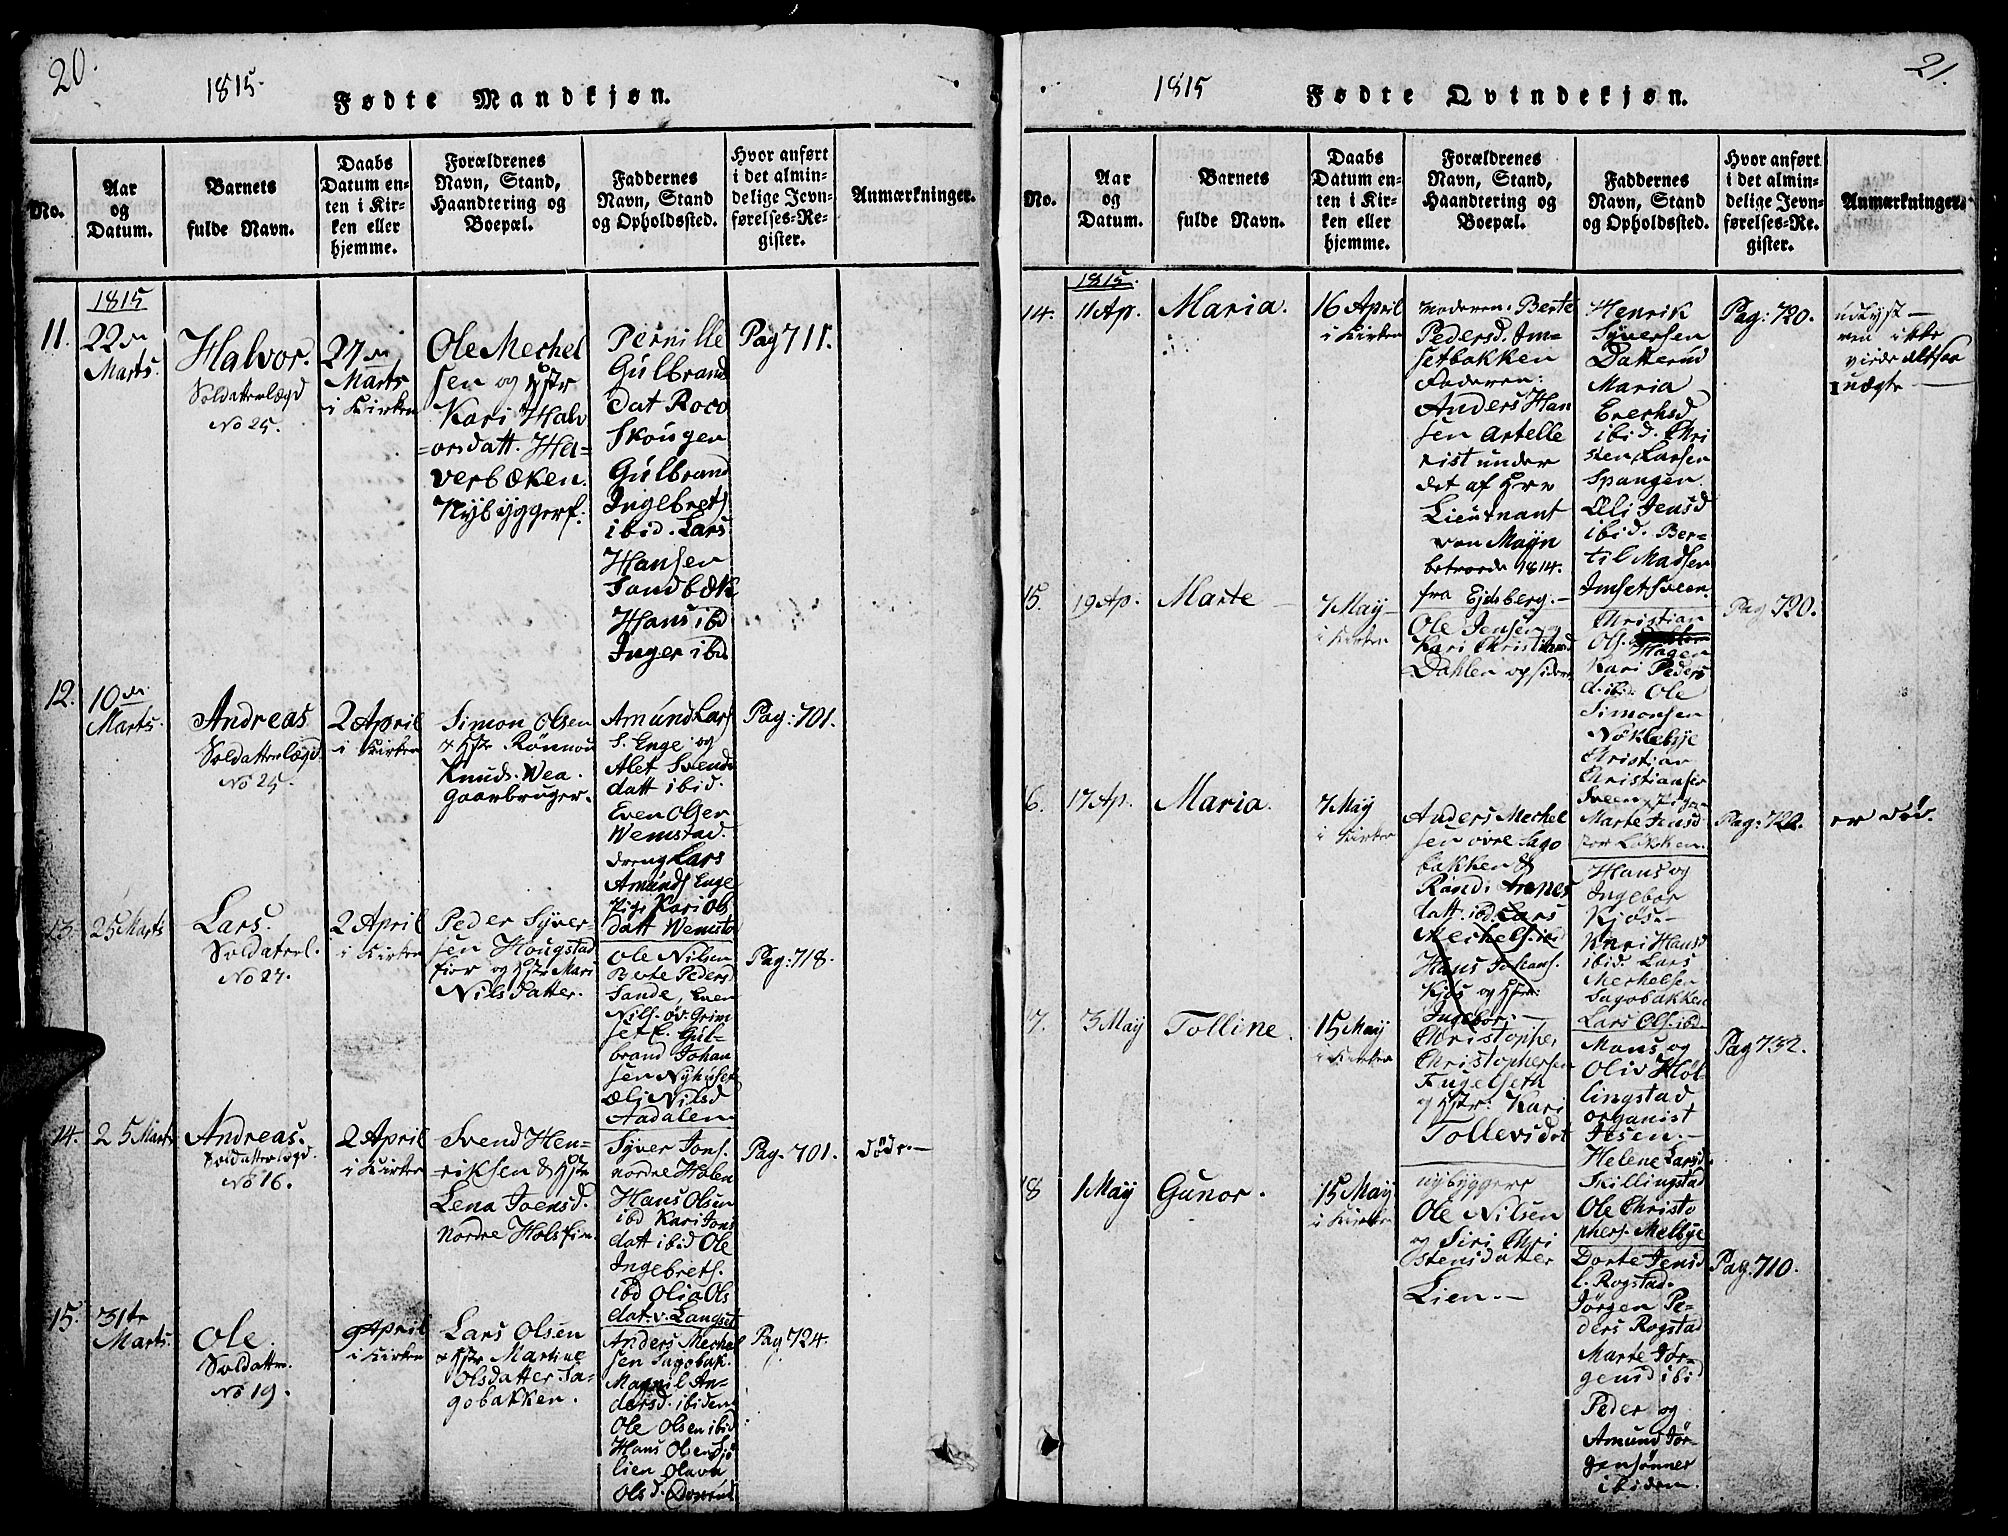 20.
1815.
Fødte Mandkjøn.
No.
Aar
og
Datum.
Barnets
fulde Navn.
Daabs
Datum en-
ten i Kir-
ken eller
hjemme.
Forældrenes
Navn, Stand,
Haandtering og
Boepæl.
Faddernes
Navn, Stand
og Opholdssted.
Hvor anført
i det almin-
delige Jevn-
førelses-Re-
gister.
Anmærkninger.
1815
11.
22de
Marts.
Halvor.
Soldatterlægd
No 25.
27de
Marts
i Kirken
Ole Mechel
sen og Hstr
Kari Halv
=orsdatt. Ha=
verbæken.
Nybyggerf.
Pernille
Gulbrand
dat Roco
Skougen
Gulbrand
Ingebrets
ibid. Lars
Hansen
Sandbæk
Hans ibd
Inger ibd
Pag 711.
12.
10de
Marts.
Andreas
Soldatterlægd
No 25.
2 April
i Kirken
Simon Olsen
& Hstr Rönnou
Knuds. Wea.
Gaarbruger.
Amund Lars
S. Enge og
Alet Svends
datt ibid.
Even Olsen
Wemstad.
dreng Lars
Amunds Enge
Pige Kari Ols
datt Wemsta
Pag: 701.
13.
25 Marts
Lars.
Soldaterl.
No 27.
2 April
i Kirken
Peder Syver-
sen Hougstad
fior og Hstr Mari
Nilsdatter.
Ole Nilsen
Berte Peders
Sande, Even
Nils. öv. Grim
set E. Gul-
brand Johan
sen Nyhuset
Eli Nilsd
Aadalen
Pag: 718.
14.
25 Marts
Andreas.
Soldatterlægd.
No 16.
2 April
i Kirken
Svend Hen-
riksen & Hstr
Lena Joensd.
Nordre Holsfin.
Syver Jons.
nordre Holen
Hans Olsen
ibd Kari Jons
datt ibid Ole
Ingebrets.
ibd Olia Ols
dat. v. Langset
Pag. 701.
døde—
15.
31te
Marts.
Ole.
Soldatter.
No 19.
9 April
i Kirken
Lars Olsen
& Hstr Martine
Olsdatter Sa-
gobakken.
Anders Mechel
sen Sagobak.
Magnil An-
dersd. ibidem
Ole Olsen ibid
Hans Olsen Sjö
lien Olava
Olsd.
Pag 724.
21.
1815
Fødte Qvindekjøn.
No.
Aar
og
Datum.
Barnets
fulde Navn.
Daabs
Datum en-
ten i Kir-
ken eller
hjemme.
Forældrenes
Navn, Stand,
Haandtering og
Boepæl.
Faddernes
Navn, Stand
og Opholdssted.
Hvor anført
i det almin-
delige Jevn-
førelses-Re-
gister.
Anmærkninger.
1815.
14.
11 Ap.
Maria.
16 April
i Kirken
moderen: Berte
Pedersd. Im-
setbakken
Faderen:
Anders Han
sen Artelle
rist under
det af Hrr
Lieutnant
von Mayn
betroede 1814.
fra Ejdsberg.—
Henrik
Syversen
Datterud
Maria
Erechsd
ibid. Chri
sten Larsen
Spangen.
Eli Jensd
ibid. Ber-
til Madsen
Imsetsveen.
Pag: 720.
udlyst—
ven ikke
viede altsaa
uægte—
15.
19 Ap.
Marte
7 May
i Kirken
Ole Jensen og
Kari Christiansd
Dahlen
Christian
Ols.
Hagen
Kari Peders
d. ibid. Ole
Simonsen
Nöklebye
Christian
Christiansen
Sveen Pigen
Marte Jensd
Løkken.
Pag 720.
6.
17 Ap.
Maria.
7 May
i Kirken
Anders Mechel
sen övre Sago
bakken &
Randi Arnes
datt. ibd Lars
Mechels. ibd
Hans Johans.
Kjös og Hstr:
Ingebor:—
Hans og
Ingebor
Kjös.—
Kari Hansd
ibid. Lars
Merhelsen
Sagobakken
Lars Ols. ibd.
Pag: 722.
er død.
17.
3 May
Tolline.
15 May
i Kirken
Christopher
Christophersen
Fugelseth
og Hstr: Kari
Tollevsdat
Mons og
Oliv Höl-
lingstad
organist
Jesen.—
Helene Larsd.
Skillingstad
Ole Christo
phers. Melbye
Pag 732.
18
1 May
Gunor.
15 May
i Kirken
nybyggere
Ole Nilsen
og Siri Chri
stensdatter
Lien.—
Dorte Jensd
l. Rogstad.
Jörgen Pe-
ders Rogstad
Marte Jör-
gensd ibid
Peder og
Amund Jör-
gensönner
ibidem.
Pag: 710.